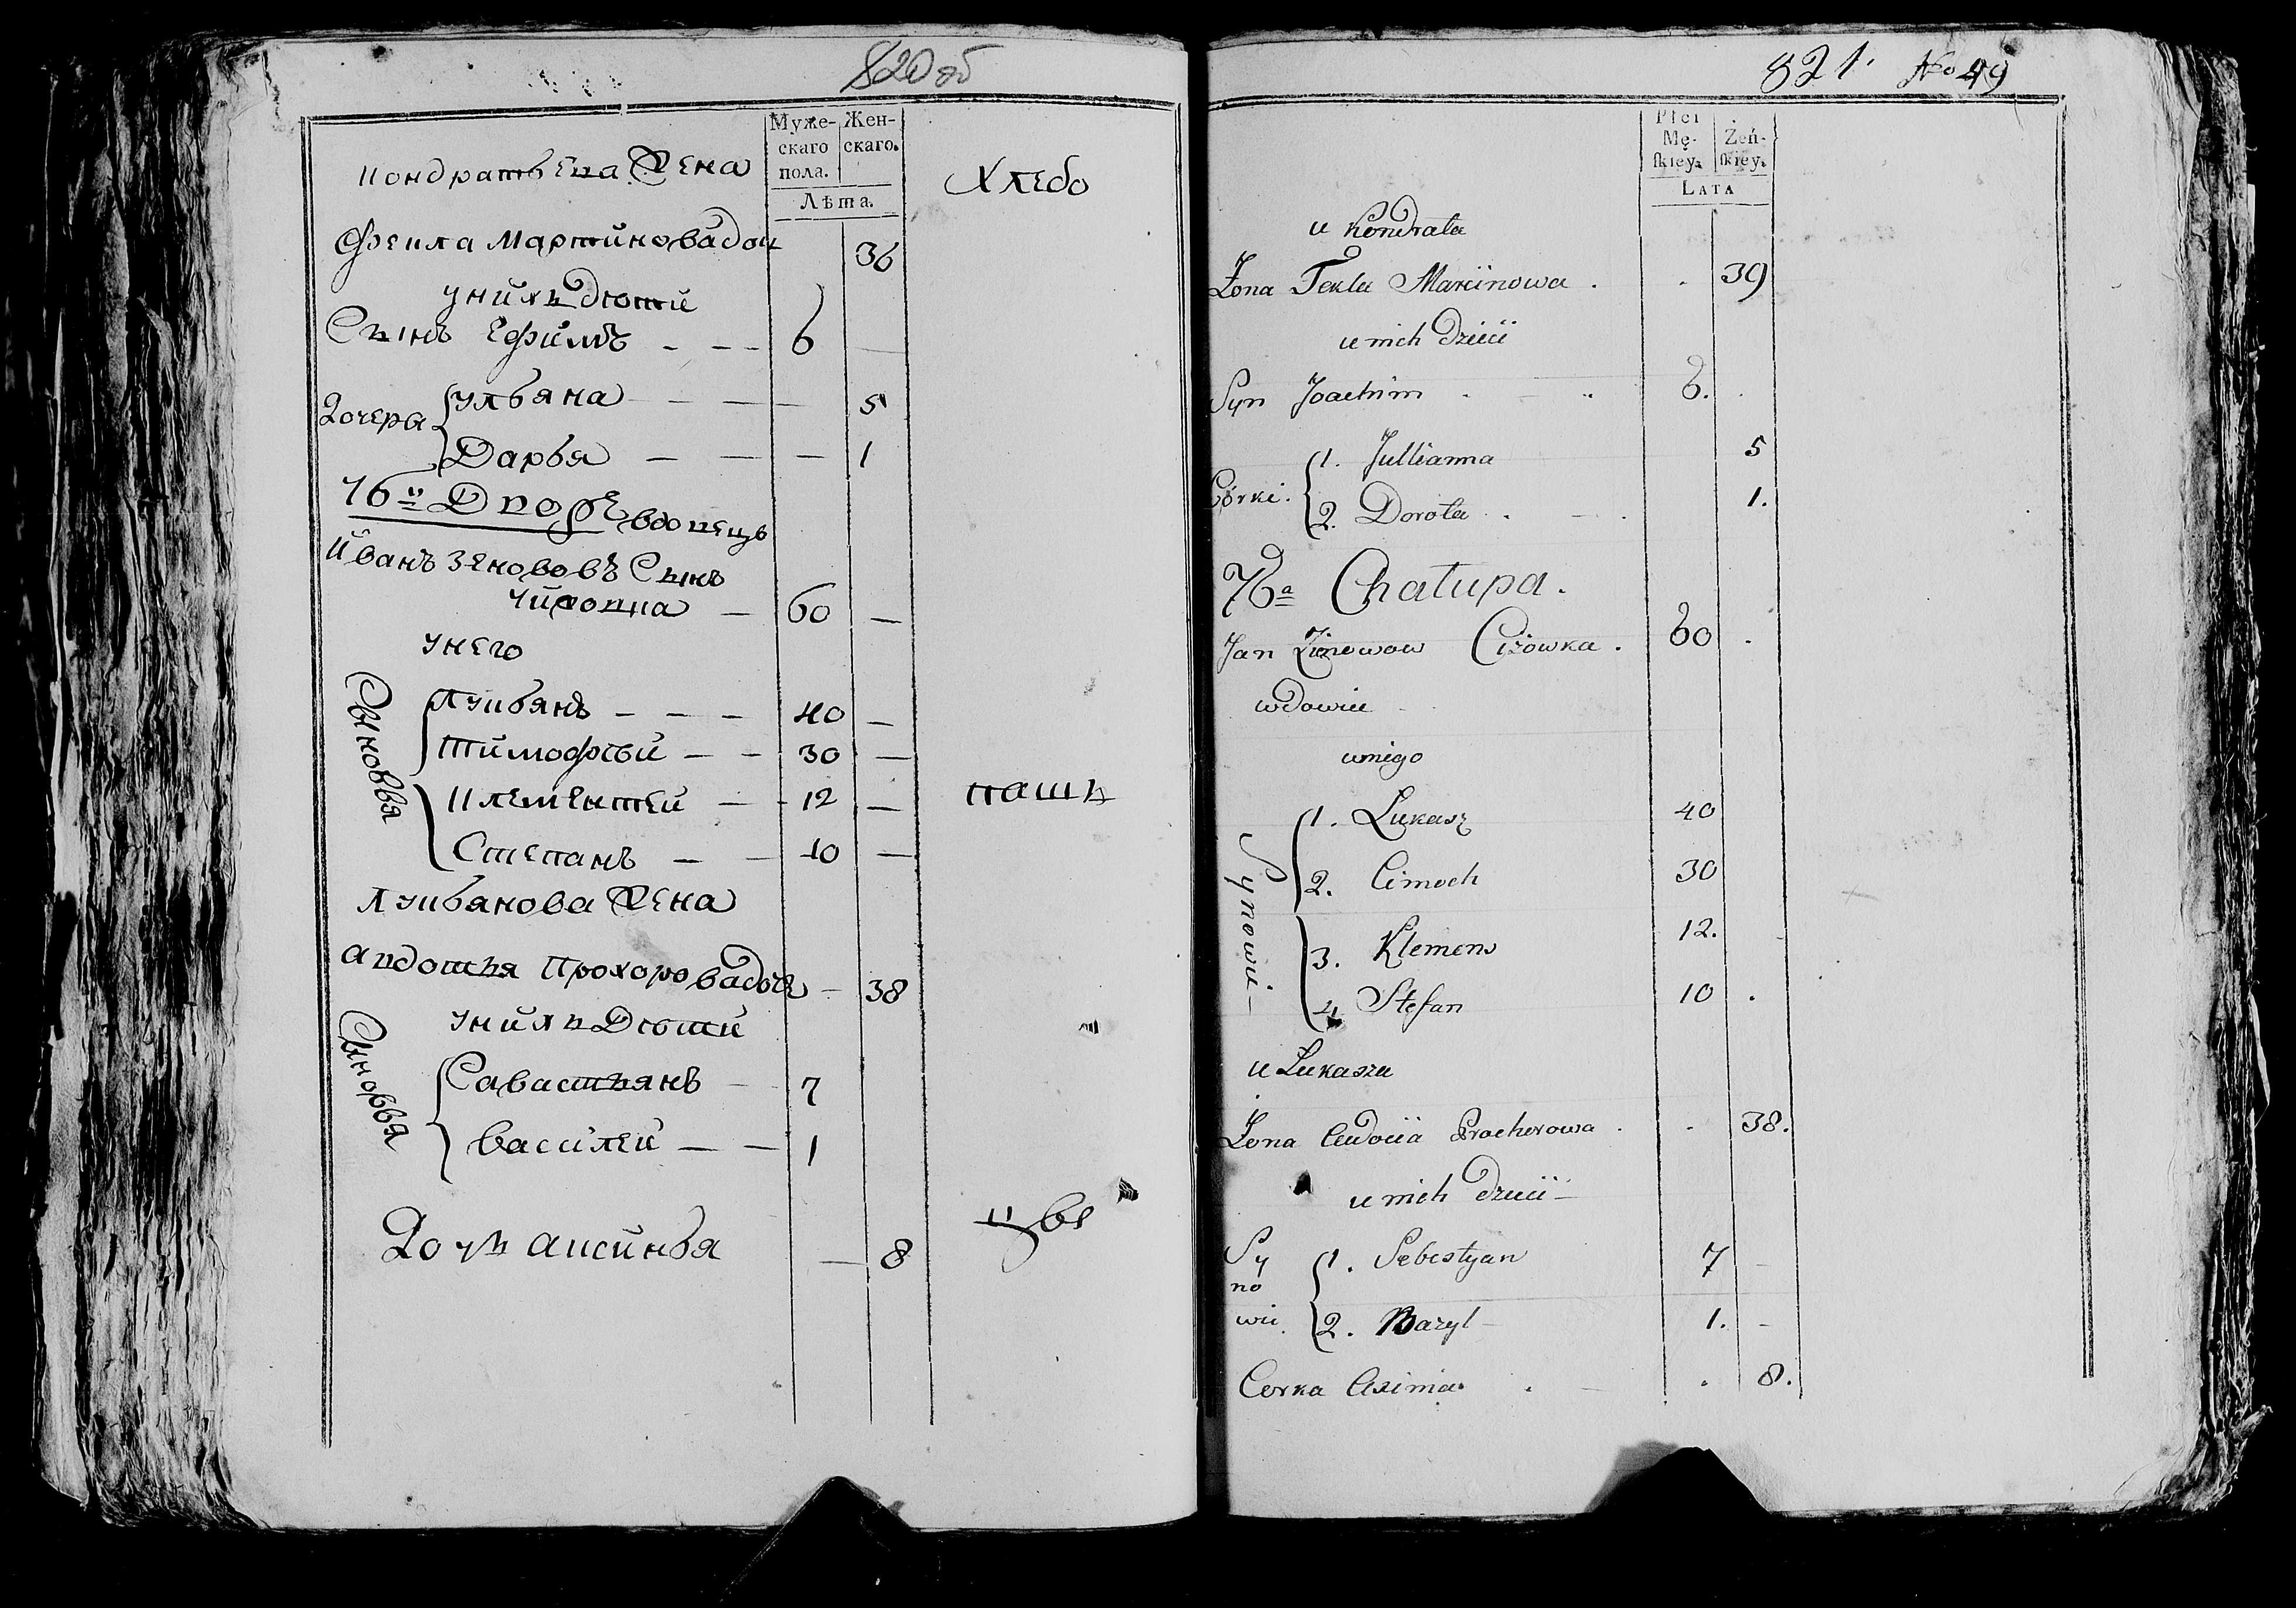 820 об
Муже-
скаго
пола.
Жен-
скаго.
Лѣта.
Кондратьева Жена
Хлебо
Фекла Мартинова доч 36
у них Дѣти
Сынъ Ефимъ 6
Дочера
Ульяна 5
Дарья 1
76й Дворъ вдовецъ
Иванъ Зеновов Сынъ
Чижовка 60
у него
Сыновья
Лукьянъ 40
Тимофѣй 30
Клементей 12
пашц
Степанъ 10
Лукьянова Жена
Авдотья Прохорова дочь 38
у них Дѣти
Сыновья
Савастьянъ 7
Василей 1
цы
Дочь Аксинья 8
821. No 49
Płci
Mę-
skiey.
Żeń-
skiey.
LATA
u Kondrata
Żona Tekla Marcinowa . 39
u nich dzieci
Syn Joachim 6.
Córki.
1. Jullianna 5
2. Dorota 1.
76a Chałupa.
Jan Zinowow Ciżowka . 60
wdowiec
u niego
Synowie
1. Łukasz 40
2. Cimoch 30
3. Klemens 12.
4 Stefan 10
u Łukasza
Żona Audocia Prochorowa 38.
u nich dzieci
Sy
no
wie
1. Sebestyan 7
2. Bazyl 1.
Corka Axinia 8.